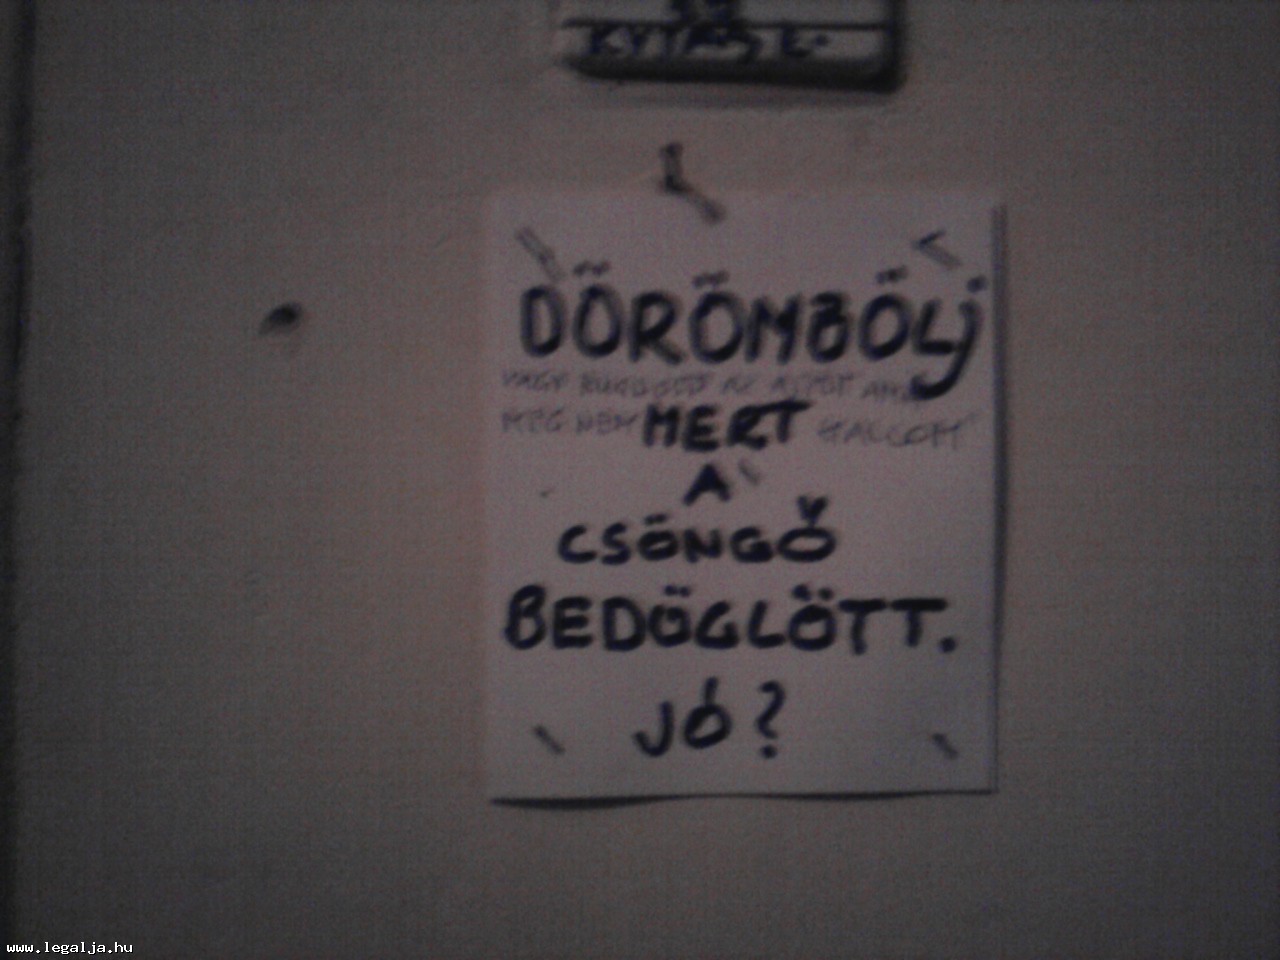 DÖRÖMBÖLj
VAGY RUGDOSD AZ AJTÓT AMÍG
MÉG NEM MERT HALLOM
A
CSÖNGŐ
BEDÖGLÖTT.
JÓ?
www.legalja.hu